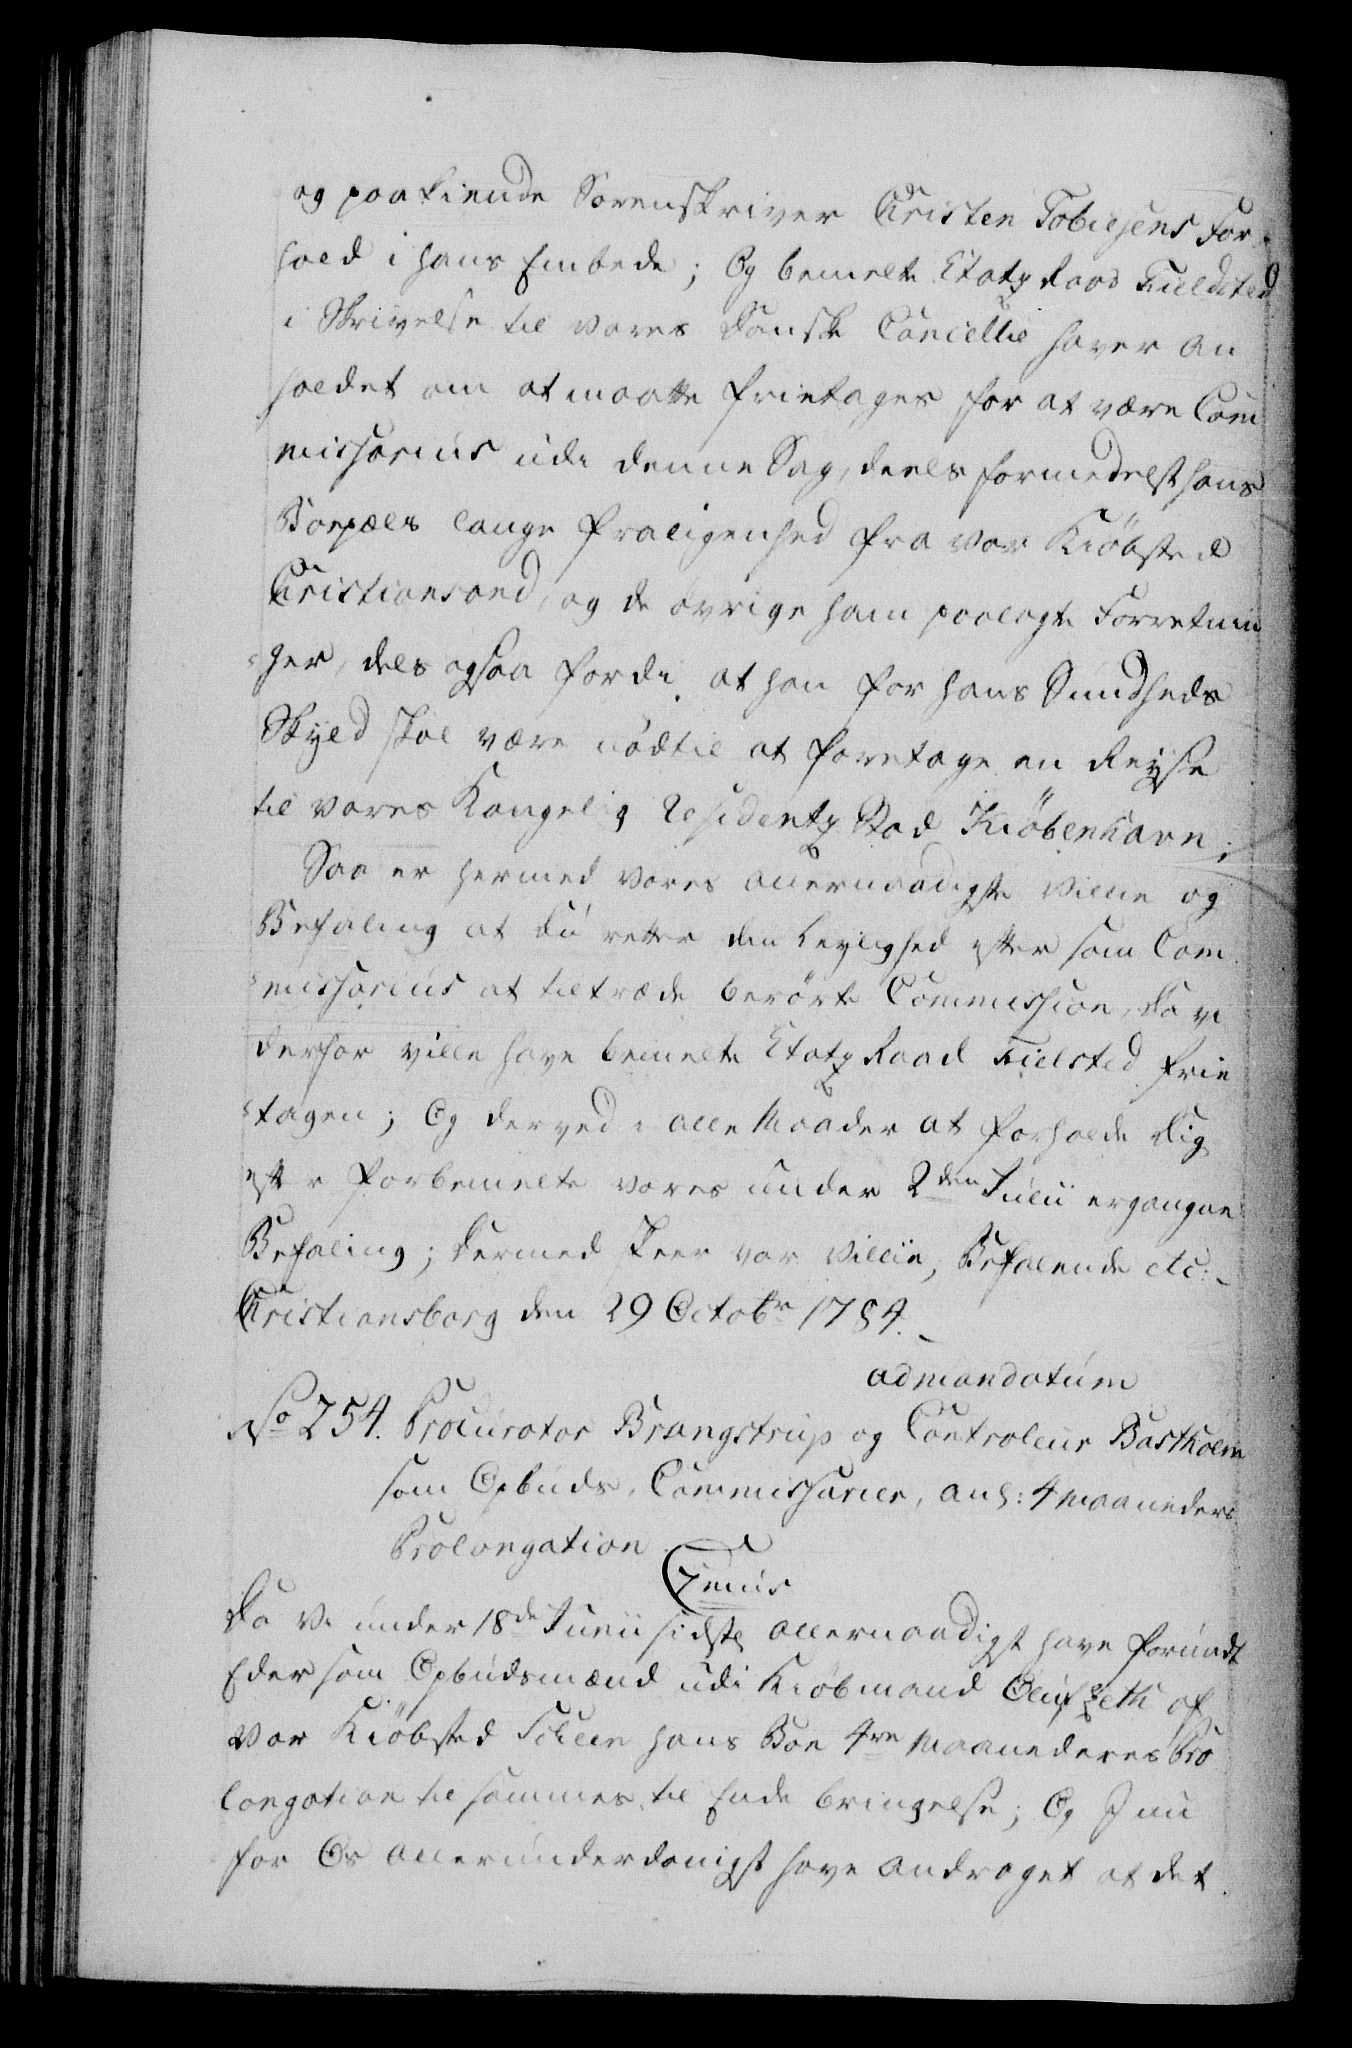 og paakiende Sorenskriver Christen Tobiesens For¬
hold i hans Embede; Og bemelte Etatz Raad Fieldsted
i Skrivelse til vores danske Cancellie haver an
holdet om at maatte fritages for at være Com
missarius udi denne Sag, deels formedelst hans
Boepæls lange fraligenhed fra vor Kiöbsted
Christiansand, og de övrige ham paalagte Forretnin
ger, dels ogsaa fordi at han for hans Sundheds
Skyld skal være nödt til at foretage en Reyse
til vores Kongelig Residentz Stad Kiöbenhavn;
Saa er hermed vores allernaadigste Villie og
Befaling at du retter din Leylighed efter som Com
missarius at tiltræde berörte Commission, da vi
derfor ville have bemelte Etatz Raad Fielsted frie
tagen; Og derved i alle Maader at forholde dig
efter forbemelte vores under 2den Julii ergangne
Befaling; dermed skeer vor Villie, Befalende etc:
Christiansborg den 29 Octobr 1784.
ad mandatum
No 254. Procurator Brangstrup og Controleur Bastholm
som Opbuds, Commissarier, anl: 4 Maaneders
Prolongation
C7mus
Da Vi under 18de Junii sidstl allernaadigst have forundt
Eder som Opbudsmænd udi Kiöbmand Oluf Zeth af
vor Kiöbsted Scheen hans Boe 4re Maaneders Pro
longation til sammes til Ende bringelse; Og I nu
for Os allerunderdanigst have andraget at det